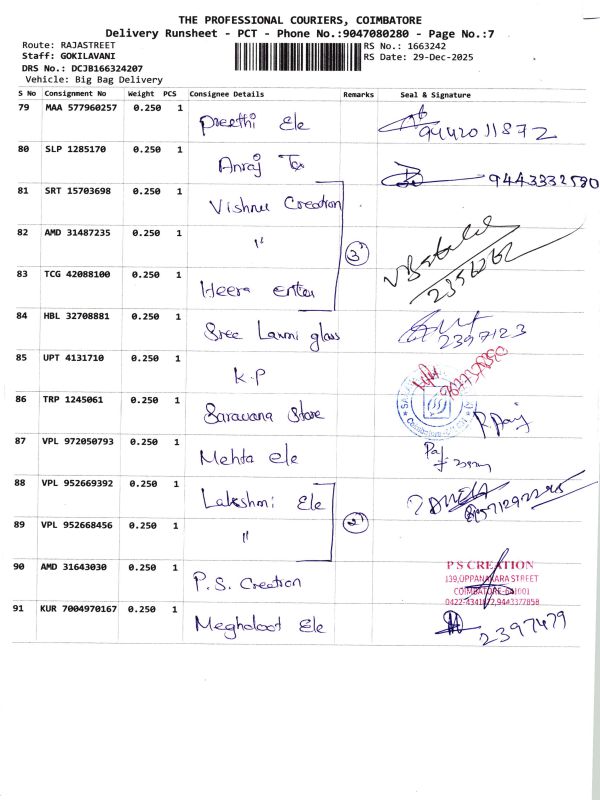 THE PROFESSIONAL COURIERS, COIMBATORE
Delivery Runsheet - PCT - Phone No.:9047080280 - Page No.:7
Route: RAJASTREET
RS No.: 1663242
Staff: GOKILAVANI
RS Date: 29-Dec-2025
DRS No.: DCJB166324207
Vehicle: Big Bag Delivery
S No Consignment No Weight PCS Consignee Details Remarks Seal & Signature
79 MAA 577960257 0.250 1 Preethi Ele 9442011872
80 SLP 1285170 0.250 1 Anraj Tex 9443332580
81 SRT 15703698 0.250 1 Vishnu Creation
82 AMD 31487235 0.250 1 " 3
83 TCG 42088100 0.250 1 Heera enter 2356262
84 HBL 32708881 0.250 1 Sree Laxmi glass 2397123
85 UPT 4131710 0.250 1 K.P
86 TRP 1245061 0.250 1 Saravana Store
87 VPL 972050793 0.250 1 Mehta ele
88 VPL 952669392 0.250 1 Lakshmi Ele
89 VPL 952668456 0.250 1 " 2
90 AMD 31643030 0.250 1 P.S. Creation
P S CREATION
139,OPPANAKARA STREET
COIMBATORE-641001
0422-4341872,9443377858
91 KUR 7004970167 0.250 1 Meghdoot Ele 2397479